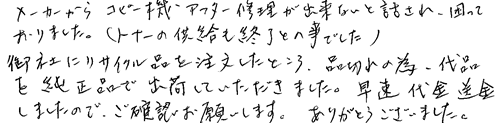 メーカーから コピー機、アフター修理が出来ないと話され、困って
おりました。（トナーの供給も終了との事でした）
御社にリサイクル品を注文したところ、品切れの為、代品
を純正品で出荷していただきました。早速 代金送金
しましたので、ご確認お願いします。 ありがとうございました。